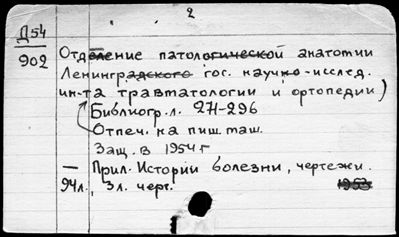 2
Д54
902
Отделение патологической анатомии
Ленинградского гос. научно-исслед.
ин-та травматологии и ортопедии)
Библиогр. л. 271-296
Отпеч. на пиш. маш.
Защ. в 1954 г
— Прил. Истории болезни, чертежи.
94 л., 3 л. черт. 1953